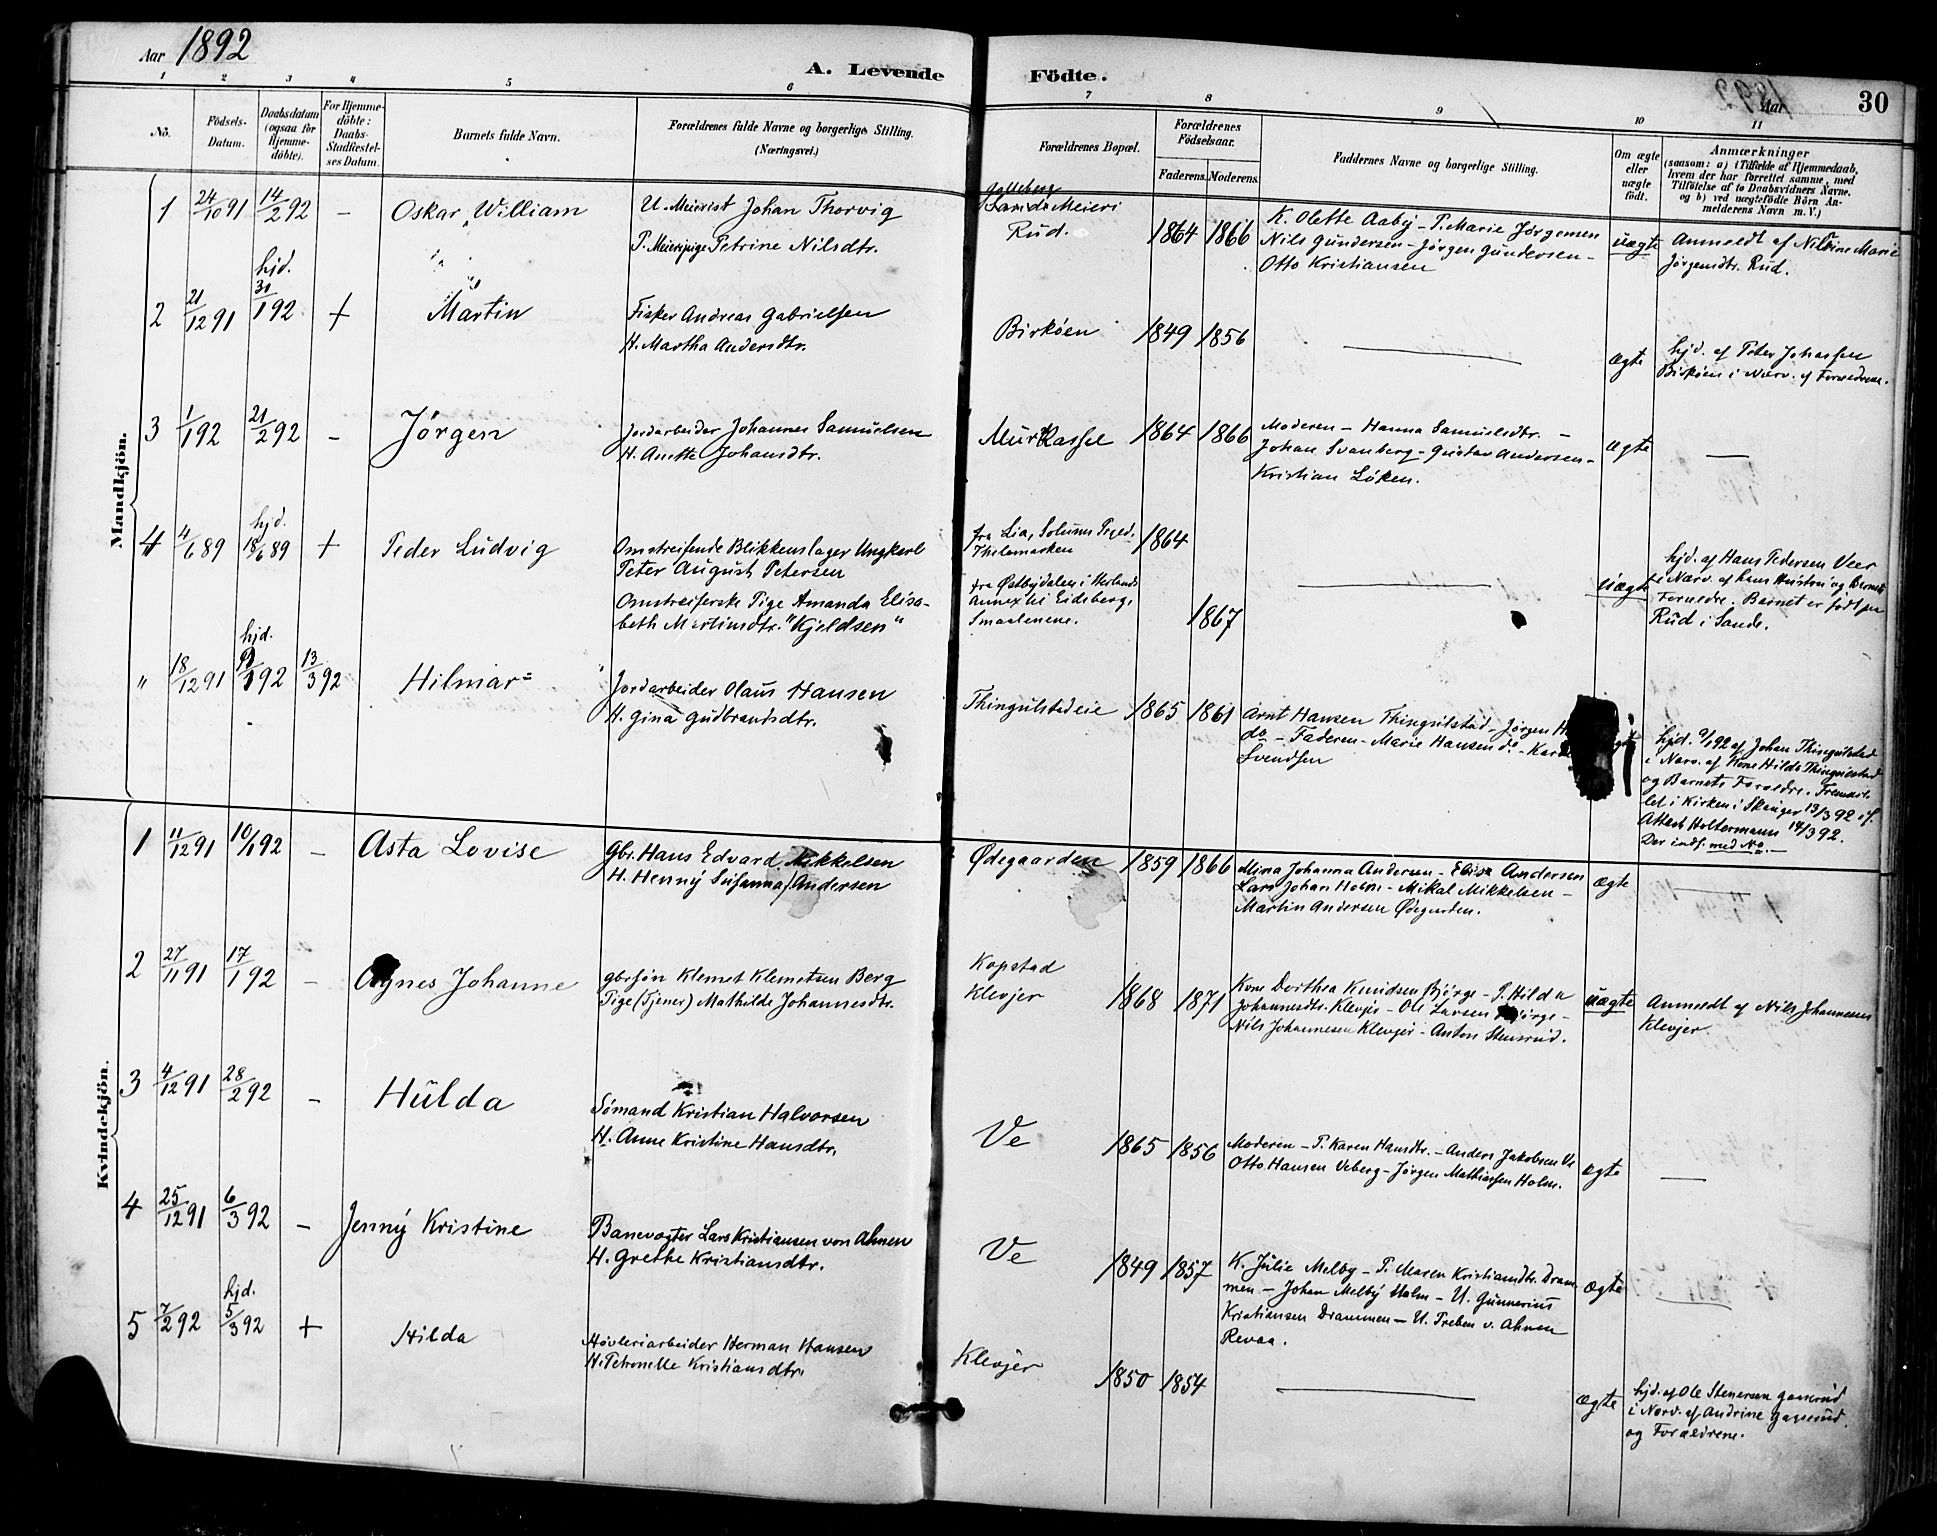 Aar 1892
A. Levende Födte.
Aar
30
1 2 3 4 5 6 7 8 9 10 11
No.
Födsels-Datum.
Daabsdatum (ogsaa for Hjemme-döbte).
For Hjemme-döbte: Daabs-Stadfæstel-ses Datum.
Barnets fulde Navn.
Forældrenes fulde Navne og borgerlige Stilling. (Næringsvei.)
Forældrenes Bopæl.
Forældrenes Födselsaar.
Faderens. Moderens.
Faddernes Navne og borgerlige Stilling.
Om ægte eller uægte födt.
Anmærkninger
(saasom: a) i Tilfælde af Hjemmedaab,
hvem der har forrettet samme, med
Tilföielse af to Daabsvidners Navne,
og b) ved uægtefödte Börn An-
melderens Navn m. V.)
Mandkjön.
1 24/10 91 14/2 92 - Oskar William
U. Meierist Johan Thorvig
P. Meieripige Petrine Nilsdtr.
Galleberg
Sande Meieri
Rud.
1864 1866
K. Olette Aaby - P. Marie Jørgensen
Nils Gundersen - Jørgen Gundersen -
Otto Kristiansen
uægte
Anmeldt af Nilsine Marie
Jørgensdtr. Rud.
2 21/12 91 hjd. 31/1 92 + Martin
Fisker Andreas Gabrielsen
H. Martha Andersdtr.
Birkøen
1849 1856
ægte
hjd. af Peter Johansen
Birkøen i Nærv. af Forældrene.
3 1/1 92 21/2 92 - Jørgen
Jordarbeider Johannes Samuelsen
H. Anette Johansdtr.
1864 1866
Moderen - Hanna Samuelsdtr. -
Johan Svanberg - Gustav Andersen -
Kristian Løken.
ægte
4 4/6 89 hjd. 18/6 89 + Peder Ludvig
Omstreifende Blikkenslager Ungkarl
Peter August Petersen
Omstreiferske Pige Amanda Elisa-
beth Martinsdtr. "Kjeldsen"
fra Lia, Solums Pgd.
Thelemarken
fra Østbydalen i Herlands
Annex til Eidsberg,
Smaalenene.
1864
1867
uægte
hjd. af Hans Pedersen Veer
i Nærv. af hans Hustru og Barnets
Forældre. Barnet er født paa
Rud i Sande.
" 18/12 91 hjd. 9/1 92 13/3 92 Hilmar
Jordarbeider Olaus Hansen
H. Gina Gudbrandsdtr.
Thingulstadeie
1865 1861
Arnt Hansen Thingulstad - Jørgen
do - Faderen - Marie Hansen do -
Svendsen
hjd. 9/1 92 af Johan Thingulstad
i Nærv. af Kone Hilda Thingulstad
og Barnets Forældre. Fremstil-
let i Kirken i Skouger 13/3 92 if.
Attest Holtermann 14/3 92.
Der indf. med No. -
Kvindekjön.
1 11/12 91 10/1 92 - Asta Lovise
Gbr. Hans Edvard Mikkelsen
H. Henny Susanna Andersen
Ødegaarden
1859 1866
Mina Johanna Andersen - Elise Andersen
Lars Johan Holm - Mikal Mikkelsen -
Martin Andersen Ødegarden.
ægte
2 27/11 91 17/1 92 - Agnes Johanne
Gbrsøn Klemet Klemetsen Berg
Pige (Tjener) Mathilde Johannesdtr.
Kopstad
Klevjer
1868 1871
Kone Dorthea Knudsen Bjørge - P. Hilda
Johannesdtr. Klevjer - Ole Larsen Bjørge -
Nils Johannesen Klevjer - Anton Stensrud.
uægte
Anmeldt af Nils Johannesen
Klevjer
3 4/12 91 28/2 92 - Hulda
Sømand Kristian Halvorsen
H. Anne Kristine Hansdtr.
Ve
1865 1856
Moderen - P. Karen Hansdtr. - Anders Jakobsen Ve
Otto Hansen Veberg - Jørgen Mathiassen Holm.
ægte
4 25/12 91 6/3 92 - Jenny Kristine
Banevogter Lars Kristiansen von Ahnen
H. Grethe Kristiansdtr.
Ve
1849 1857
K. Julie Melby - P. Maren Kristiansdtr. Dram-
men - Johan Melby Holm - U. Gunnerius
Kristiansen Drammen - U. Preben v. Ahnen
Revaa.
ægte
5 7/2 92 hjd. 5/3 92 + Hilda
Høvleriarbeider Herman Hansen
H. Petronelle Kristiansdtr.
Klevjer
1850 1854
ægte
hjd. af Ole Stenersen Gaserud
i Nærv. af Andrine Gaserud
og Forældrene.